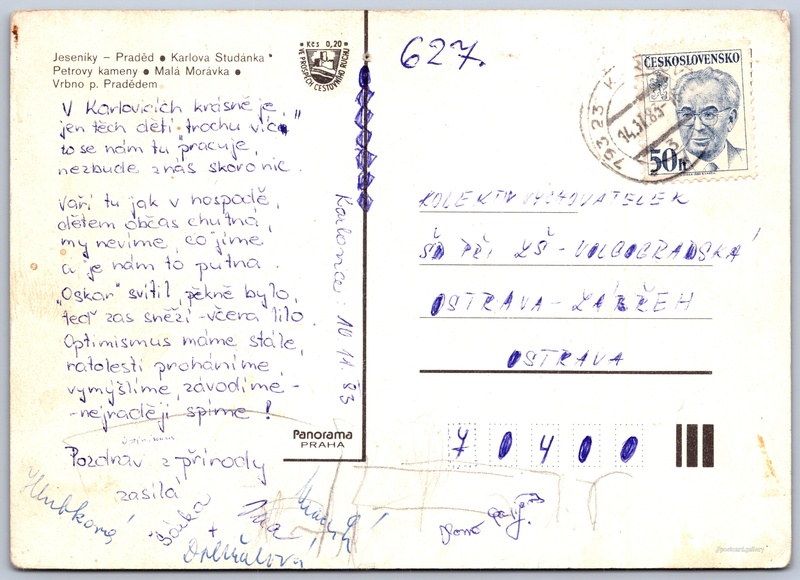 Jeseníky – Praděd ● Karlova Studánka
Petrovy kameny ● Malá Morávka ●
Vrbno p. Pradědem
Kčs 0,20
VE PROSPĚCH CESTOVNÍHO RUCHU
V Karlovicích krásně je,
jen těch dětí trochu víc
to se nám tu pracuje,
nezbude z nás skoro nic.
Vaří tu jak v hospodě,
dětem občas chutná,
my nevíme, co jíme
a je nám to putna.
"Oskar" svítil, pěkně bylo,
teď zas sněží - včera lilo.
Optimismus máme stále,
ratolesti proháníme,
vymýšlíme, závodíme -
- nejraději spíme!
Pozdrav z přírody
zasílá
Hlubková
Šárka
+
10 11. 83
Panorama
PRAHA
627.
ČESKOSLOVENSKO
50h
793 23
14.11.83
KOLEKTIV VYCHOVATELEK
ŠD PŘI ZŠ - VOLGOGRADSKÁ
OSTRAVA - ZÁBŘEH
OSTRAVA
70400